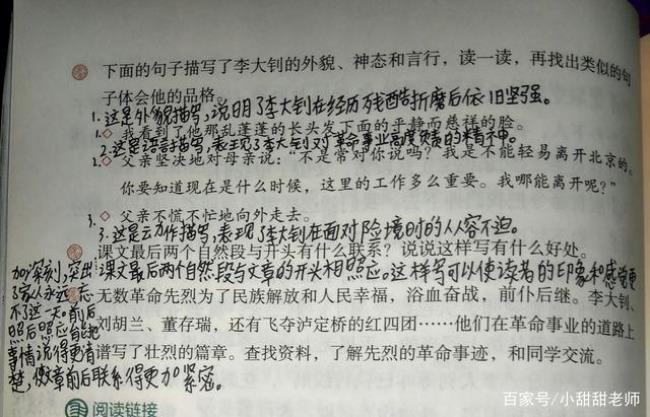 下面的句子描写了李大钊的外貌、神态和言行，读一读，再找出类似的句
子体会他的品格。
1.这是外貌描写，说明了李大钊在经历残酷折磨后依旧坚强。
1.◇ 我看到了他那乱蓬蓬的长头发下面的平静而慈祥的脸。
2.这是语言描写，表现了李大钊对革命事业高度负责的精神。
2.◇ 父亲坚决地对母亲说：“不是常对你说吗？我是不能轻易离开北京的。
你要知道现在是什么时候，这里的工作多么重要。我哪能离开呢？”
3.◇ 父亲不慌不忙地向外走去。
3.这是动作描写，表现了李大钊在面对险境时的从容不迫。
课文最后两个自然段与开头有什么联系？说说这样写有什么好处。
课文最后两个自然段与文章的开头相照应。这样写可以使读者的印象和感觉更
加深刻，突出
了家人永远忘
不了这一天。前后
照后照应自能把
事情说得更清
楚，使文章前后联系得更加紧密。
无数革命先烈为了民族解放和人民幸福，浴血奋战，前仆后继。李大钊、
刘胡兰、董存瑞，还有飞夺泸定桥的红四团……他们在革命事业的道路上
谱写了壮烈的篇章。查找资料，了解先烈的革命事迹，和同学交流。
阅读链接
百家号/小甜甜老师